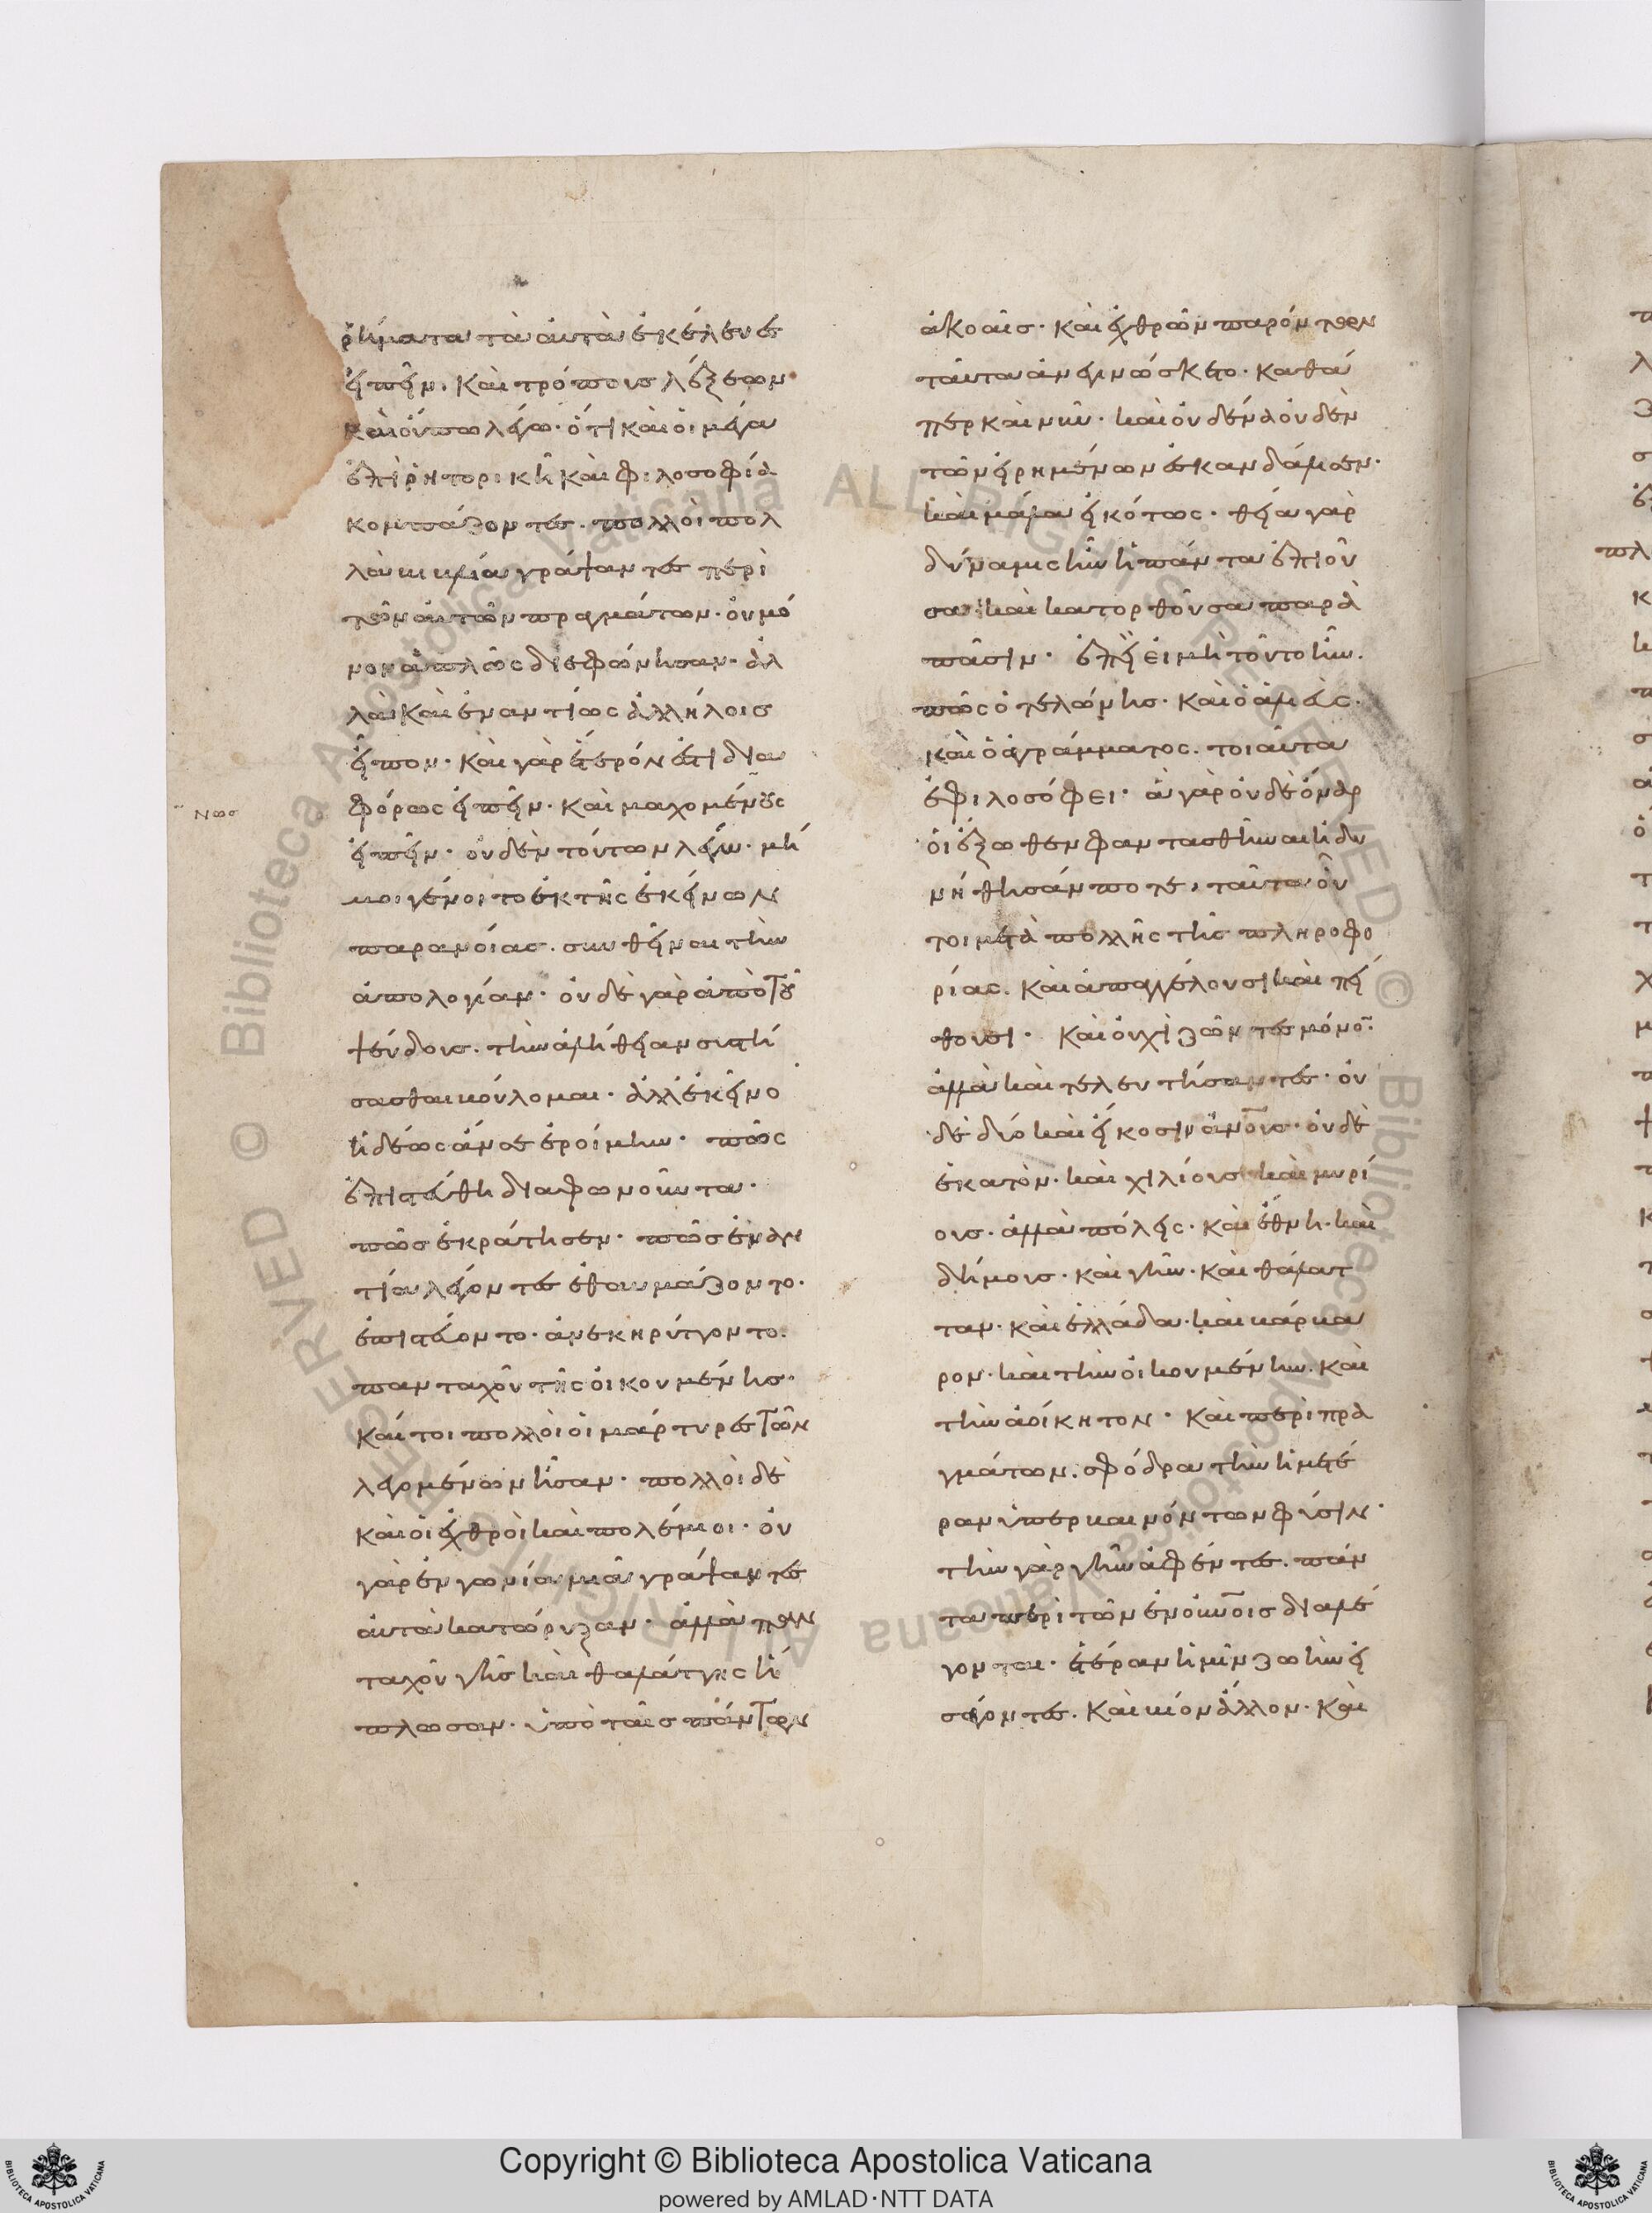 ῥήματα τὰ αὐτὰ ἐκέλευε
εἰπεῖν. καὶ τρόπους λέξεων·
καὶ οὔπω λέγω· ὅτι καὶ οἱ μέγα
ἐπὶ ῥητορικῆ καὶ φιλοσοφία
κομπάζοντες. πολλοὶ πολ
λὰ βιβλία γράψαντες περὶ
τῶν αὐτῶν πραγμάτων· οὐ μό
νον ἁπλῶς διεφώνησαν· ἀλ
λὰ καὶ ἐναντίως ἀλλήλοις
εἶπον· καὶ γὰρ ἕτερόν ἐστι δια
φόρως εἰπεῖν· καὶ μαχομένους
νως
εἰπεῖν· οὐδὲν τούτων λέγω· μή
μοι γένοιτο ἐκ τῆς ἐκείνων
παρανοίας. συνθεῖναι τὴν
ἀπολογίαν· οὐδὲ γὰρ ἀπὸ τοῦ
ψεύδους. τὴν ἀλήθειαν συστή
σασθαι βούλομαι· ἀλλ' ἐκεῖνο
ἡδέως ἂν ἐροίμην· πῶς
ἐπιστεύθη διαφωνοῦντα·
πῶς ἐκράτησεν· πῶς ἐναν
τία λέγοντες ἐθαυμάζοντο·
ἐπιστεύοντο· ἀνεκηρύττοντο.
πανταχοῦ τῆς οἰκουμένης·
καίτοι πολλοὶ οἱ μάρτυρες τῶν
λεγομένων ἦσαν· πολλοὶ δὲ
καὶ οἱ ἐχθροὶ καὶ πολέμιοι· οὐ
γὰρ ἐν γωνία μιᾶ γράψαντες
αὐτὰ κατώρυξαν· ἀλλὰ παν
ταχοῦ γῆς καὶ θαλάττης ἥ
πλωσαν. ὑπὸ ταῖς πάντων
ἀκοαῖς· καὶ ἐχθρῶν παρόντων
ταῦτα ἀνεγινώσκετο· καθά
περ καὶ νῦν· καὶ οὐδένα οὐδὲν
τῶν εἰρημένων ἐσκανδάλισεν·
καὶ μάλα εἰκότως· θεία γὰρ
δύναμις ἦν ἡ πάντα ἐπιοῦ
σα· καὶ κατορθοῦσα παρὰ
πᾶσιν· ἐπεὶ εἰ μὴ τοῦτο ἦν.
πῶς ὁ τελώνης· καὶ ὁ ἁλιεύς.
καὶ ὁ ἀγράμματος. τοιαῦτα
ἐφιλοσόφει· ἃ γὰρ οὐδὲ ὄναρ
οἱ ἔξωθεν φαντασθῆναι ἠδυ
νήθησάν ποτε, ταῦτα οὗ
τοι μετὰ πολλῆς τῆς πληροφο
ρίας. καὶ ἀπαγγέλουσι καὶ πεί
θουσι· καὶ οὐχὶ ζῶντες μόνον·
ἀλλὰ καὶ τελευτήσαντες· οὐ
δὲ δύο καὶ εἴκοσιν ἀνους· οὐδὲ
ἑκατὸν· καὶ χιλίους καὶ μυρί
ους· ἀλλὰ πόλεις· καὶ ἔθνη· καὶ
δήμους· καὶ γῆν· καὶ θάλατ
ταν· καὶ ἑλλάδα· καὶ βάρβα
ρον· καὶ τὴν οἰκουμένην. καὶ
τὴν ἀοίκητον· καὶ περὶ πρα
γμάτων. σφόδρα τὴν ἡμετέ
ραν ὑπερβαινόντων φύσιν·
τὴν γὰρ γῆν ἀφέντες. πάν
τα περὶ τῶν ἐν οὐνοις διαλέ
γονται· ἑτέραν ἡμῖν ζωὴν εἰ
σάγοντες. καὶ βίον ἄλλον· καὶ